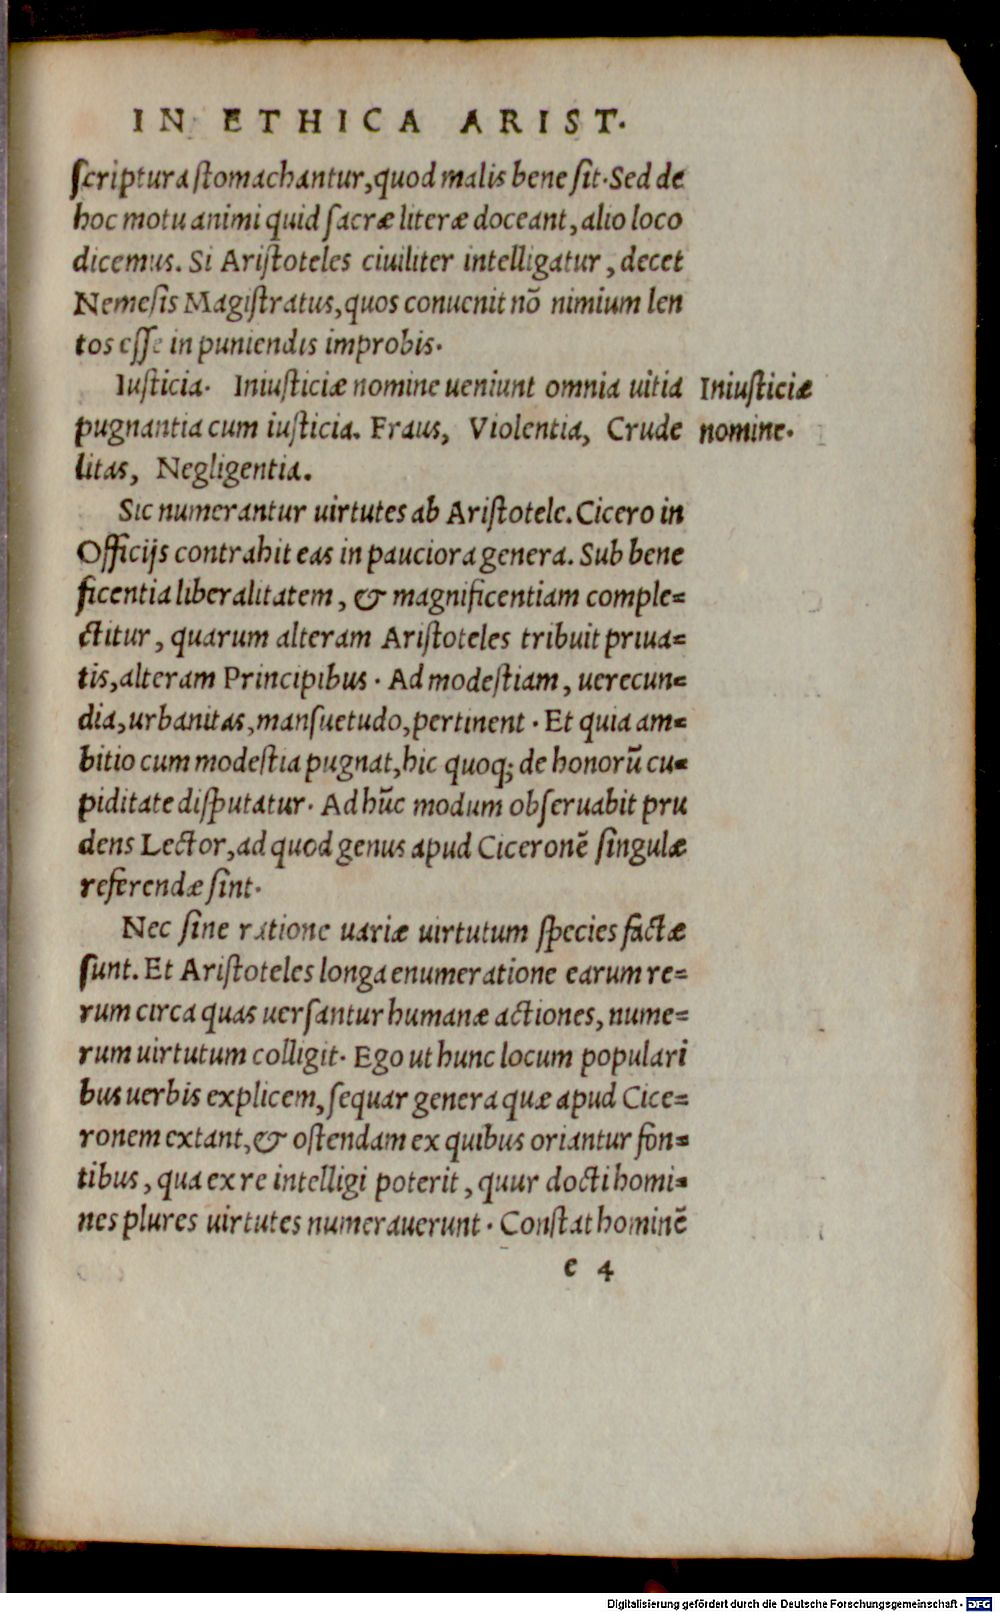 IN ETHICA ARIST.
scriptura stomachantur, quod malis bene sit. Sed de
hoc motu animi quid sacræ literæ doceant, alio loco
dicemus. Si Aristoteles ciuiliter intelligatur, decet
Nemesis Magistratus, quos conuenit nō nimium len
tos esse in puniendis improbis.
Iusticia. Iniusticiæ nomine ueniunt omnia uitia
Iniusticiæ
pugnantia cum iusticia. Fraus, Violentia, Crude
nomine.
litas, Negligentia.
Sic numerantur uirtutes ab Aristotele. Cicero in
Officijs contrahit eas in pauciora genera. Sub bene
ficentia liberalitatem, & magnificentiam comple=
ctitur, quarum alteram Aristoteles tribuit priua=
tis, alteram Principibus. Ad modestiam, uerecun=
dia, urbanitas, mansuetudo, pertinent. Et quia am=
bitio cum modestia pugnat, hic quoq; de honorū cu=
piditate disputatur. Ad hūc modum obseruabit pru
dens Lector, ad quod genus apud Ciceronē singulæ
referendæ sint.
Nec sine ratione uariæ uirtutum species factæ
sunt. Et Aristoteles longa enumeratione earum re=
rum circa quas uersantur humanæ actiones, nume=
rum uirtutum colligit. Ego ut hunc locum populari
bus uerbis explicem, sequar genera quæ apud Cice=
ronem extant, & ostendam ex quibus oriantur fon=
tibus, qua ex re intelligi poterit, quur docti homi=
nes plures uirtutes numerauerunt. Constat hominē
e 4
Digitalisierung gefördert durch die Deutsche Forschungsgemeinschaft - DFG